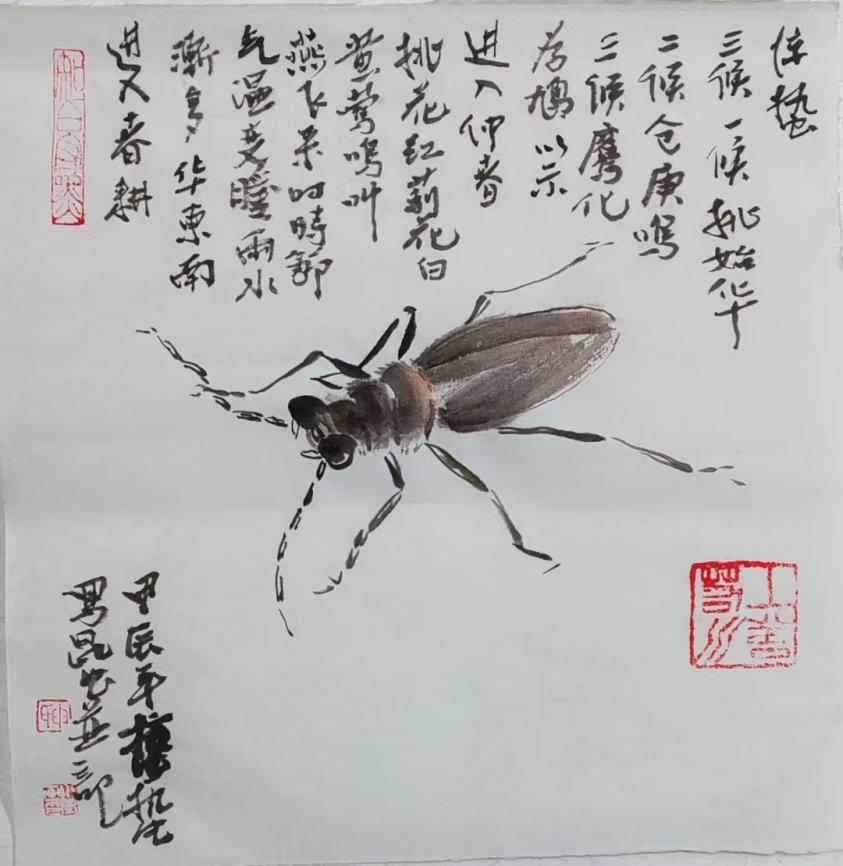 惊蛰
三候一候桃始华
二候仓庚鸣
三候鹰化
为鸠以示
进入仲春
桃花红莉花白
黄莺鸣叫
燕飞来的时节
气温变暖雨水
渐多华东南
进入春耕
甲辰年惊蛰
昆写并记